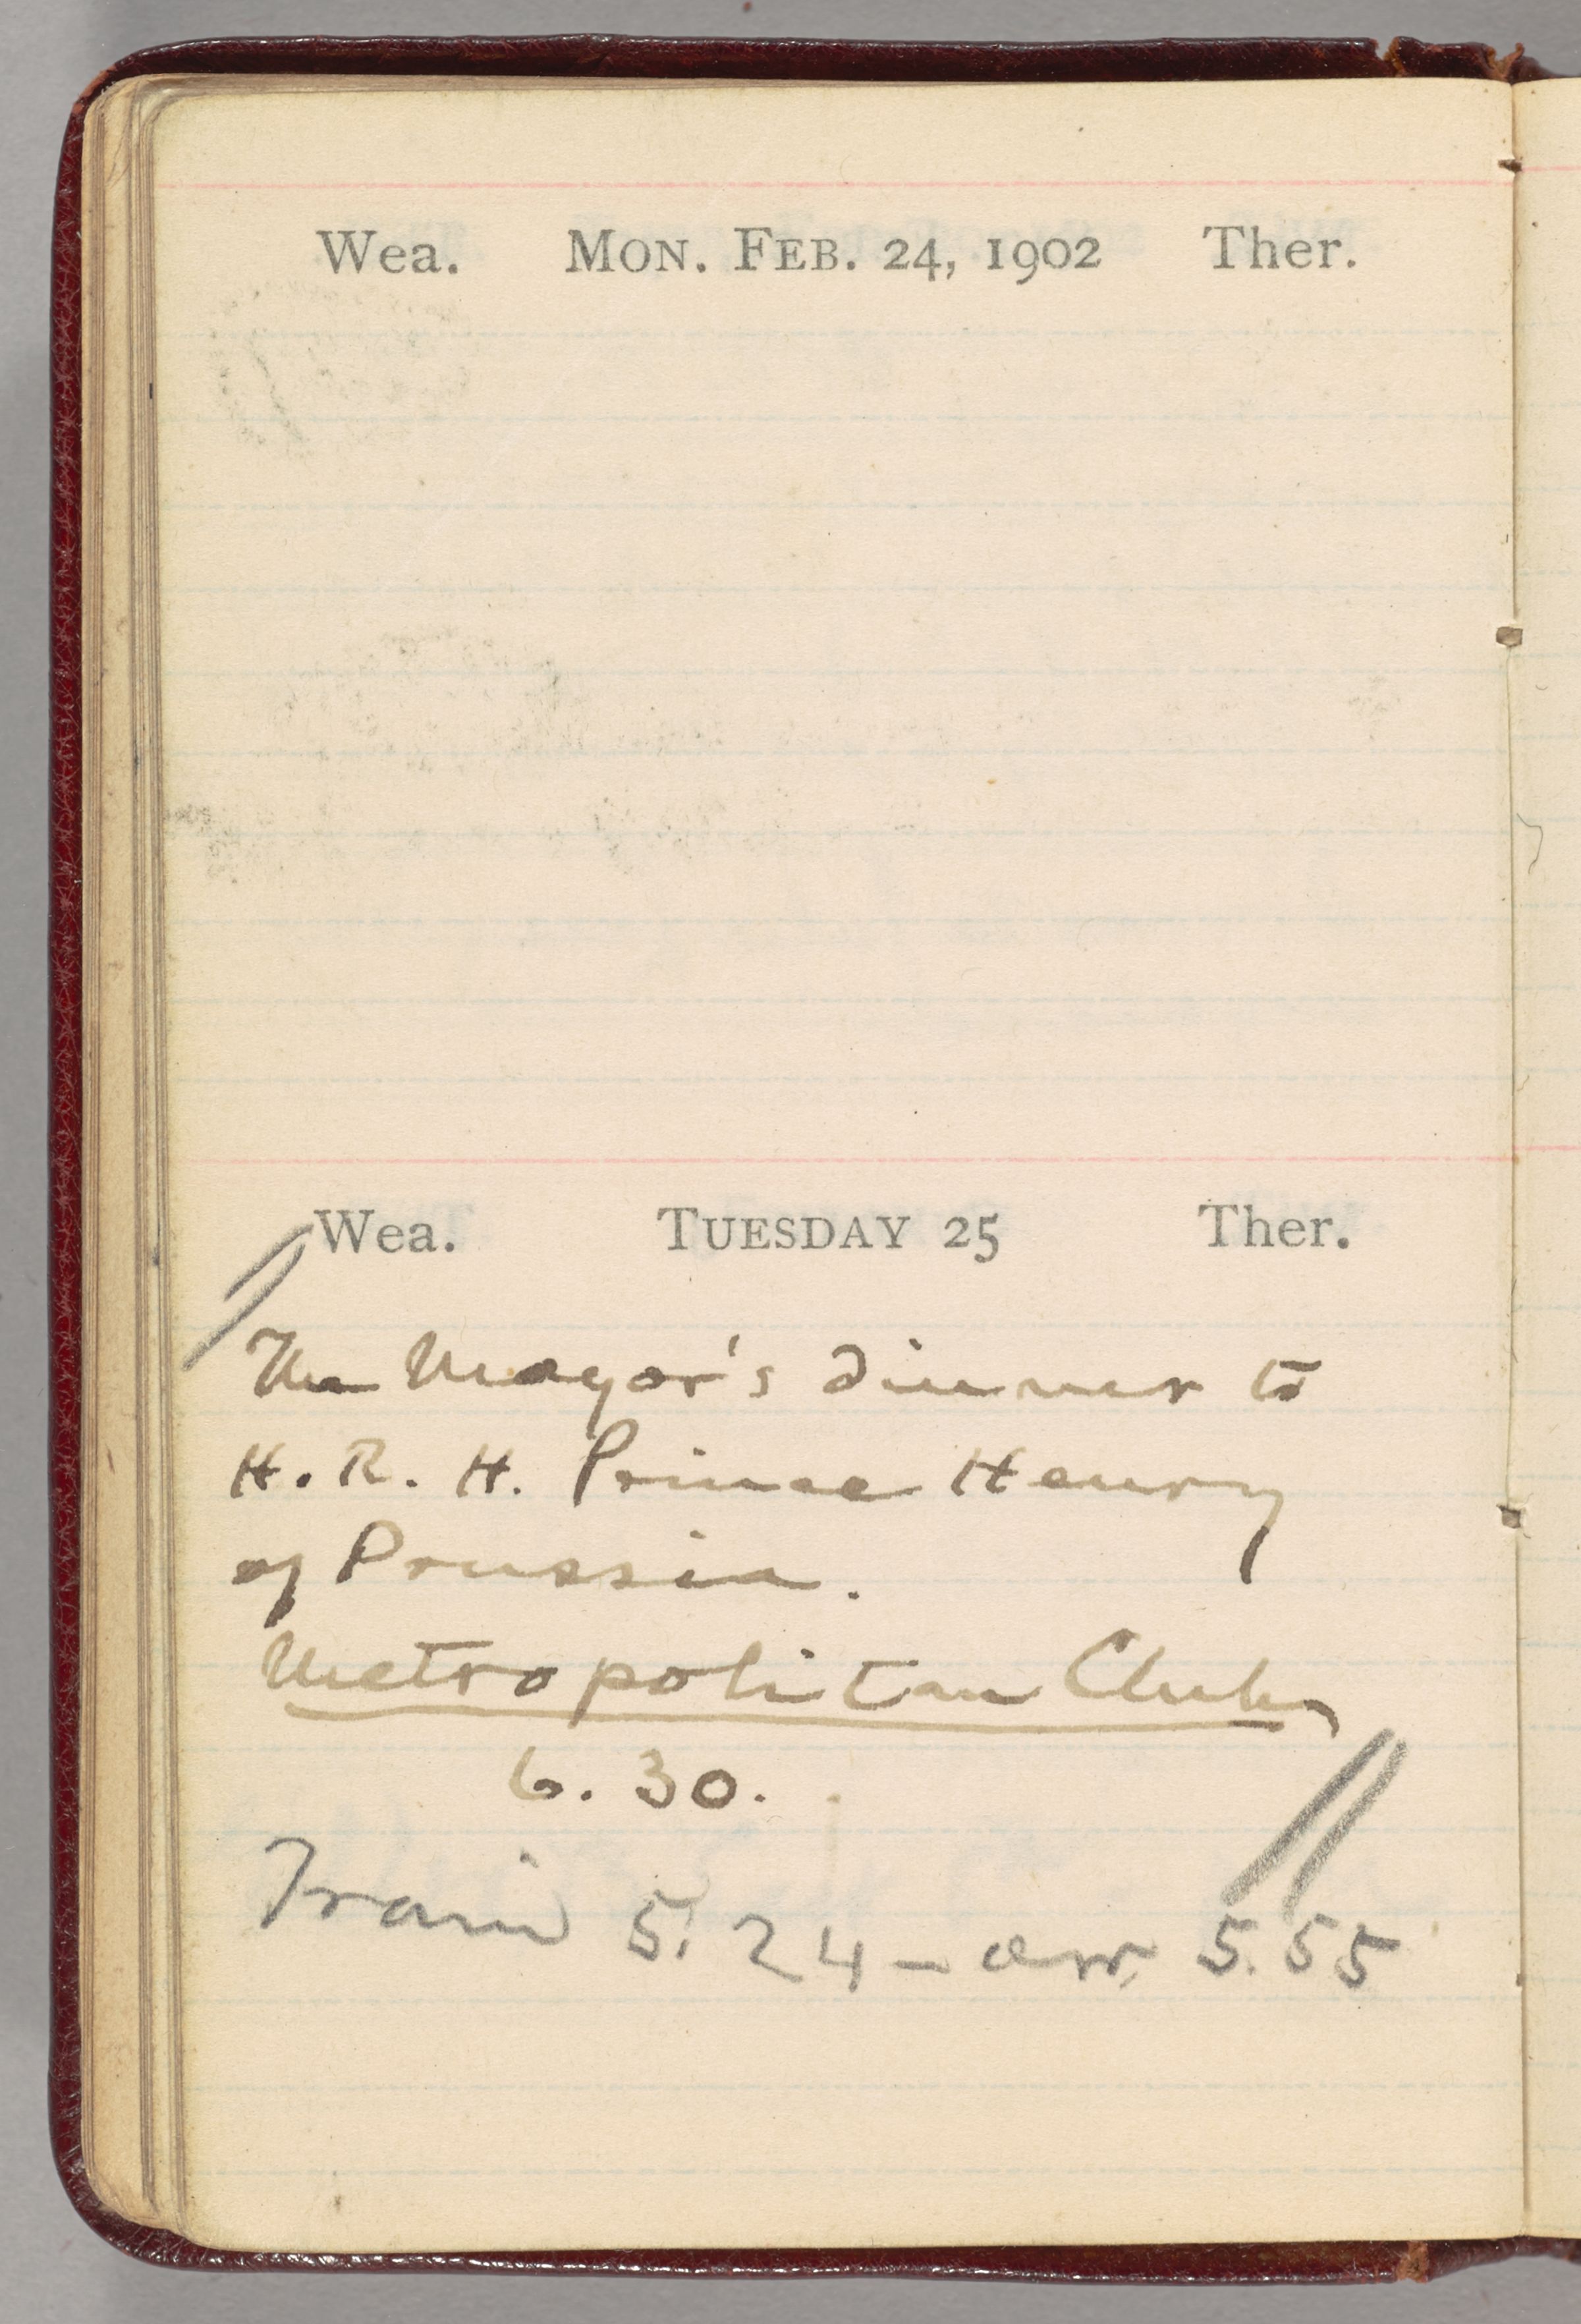 Wea. MON. FEB. 24, 1902 Ther.
Wea. TUESDAY 25 Ther.
The Mayor's dinner to
H. R. H. Prince Henry
of Prussia.
Metropolitan Club,
6. 30.
Train 5. 24 – arr. 5.55